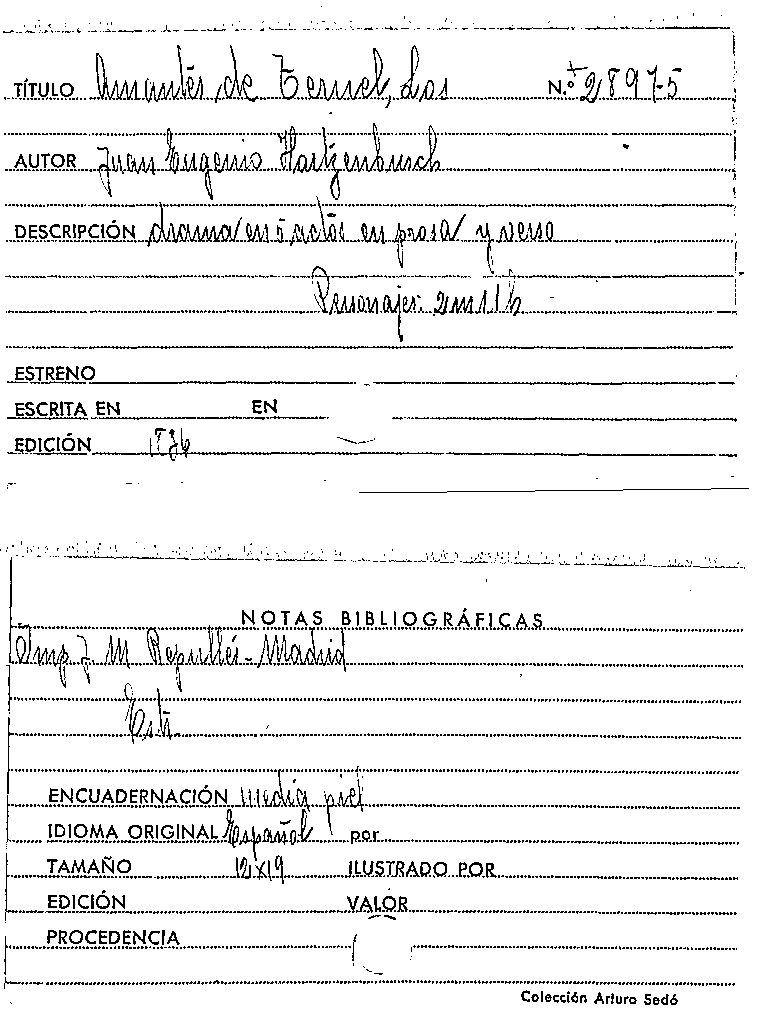 TÍTULO Amantes de Teruel, Los N.º 28975
AUTOR Juan Eugenio Hartzenbusch
DESCRIPCIÓN drama en 5 actos en prosa y verso
Personajes: 2m 11h
ESTRENO
ESCRITA EN EN
EDICIÓN 1836
NOTAS BIBLIOGRÁFICAS
Imp. J. M. Repullés - Madrid
ENCUADERNACIÓN media piel
IDIOMA ORIGINAL Español por
TAMAÑO 12x19 ILUSTRADO POR
EDICIÓN VALOR
PROCEDENCIA
Colección Arturo Sedó